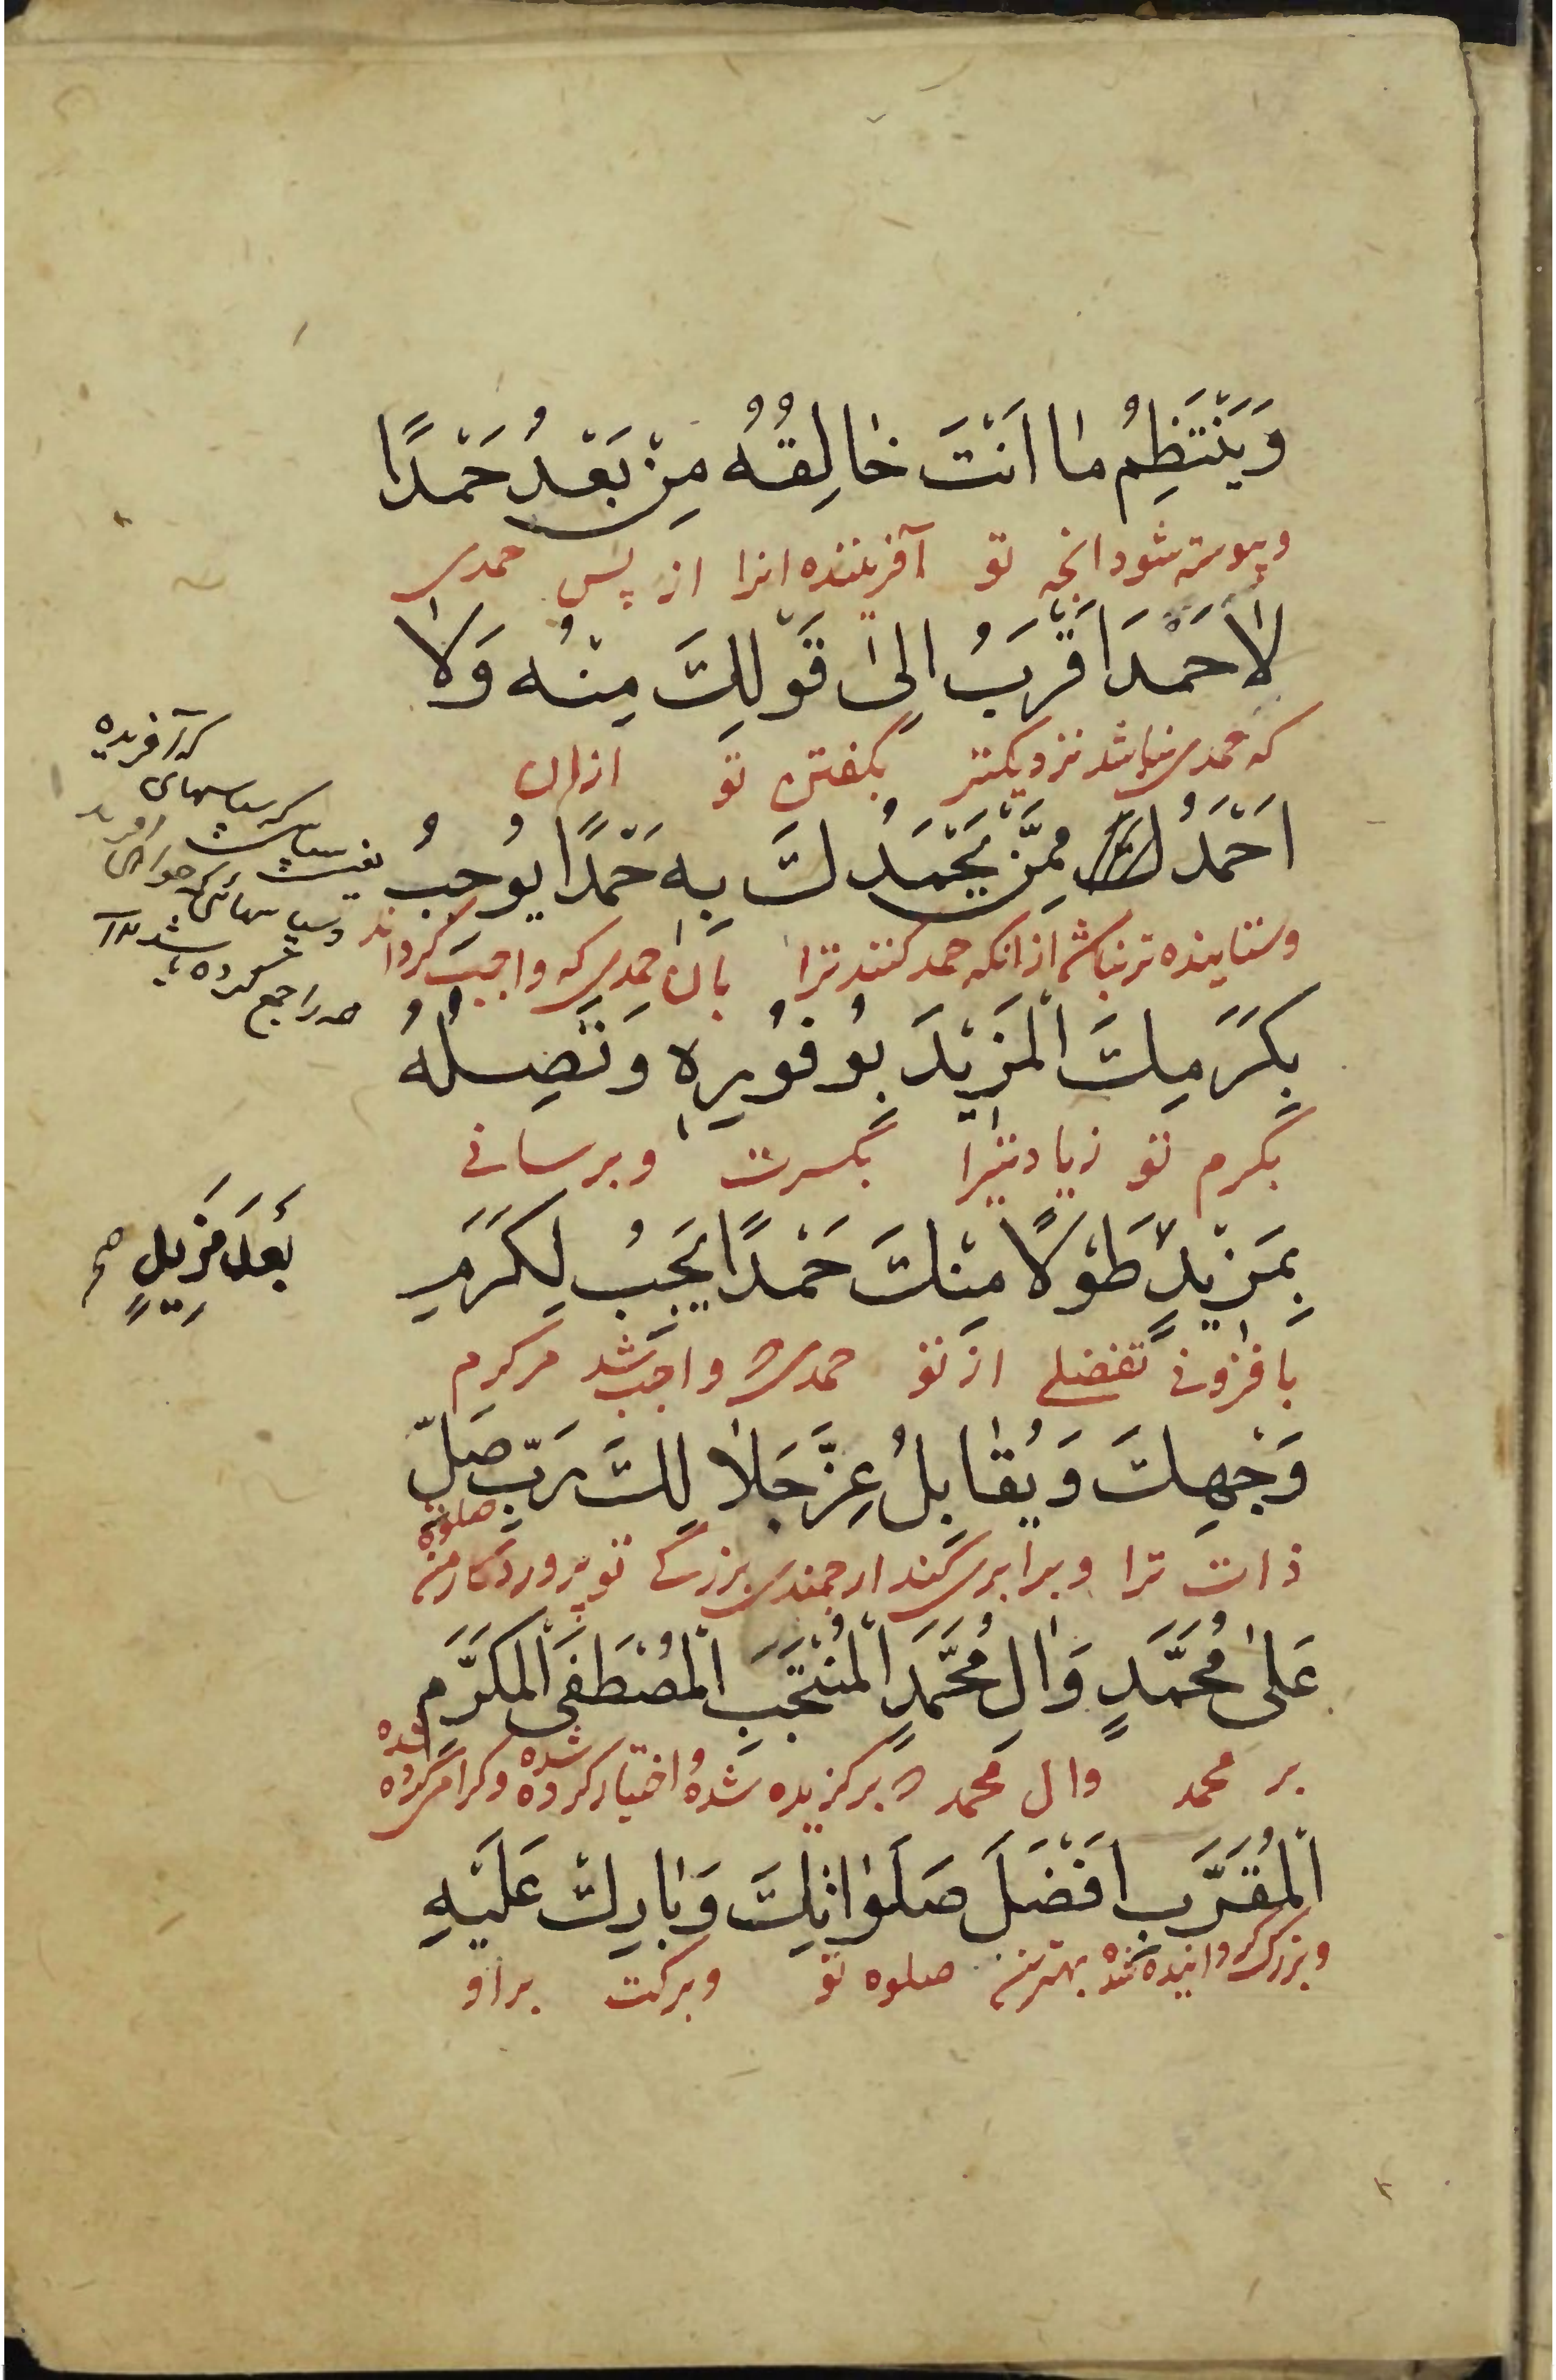 وَيَنْتَظِمُ مٰا اَنْتَ خٰالِقُهُ مِنْ بَعْدُ حَمْدًا
وپیوسته شود انچه تو آفریننده انرا از پس حمدی
لاٰ حَمْدَ اَقْرَبُ اِلىٰ قَوْلِكَ مِنْهُ وَلاٰ
که حمدی نباشد نزدیکتر بگفتن تو ازان
اَحْمَدُ مِمَّنْ يَحْمَدُكَ بِهِ حَمْدًا يُوجِبُ
وستاینده تر نباشد ازانکه حمد کنند ترا بان حمدی که واجب گرداند
بِكَرَمِكَ الْمَزِيْدَ بِوُفُورِهِ وَتَصِلُهُ
بکرم تو زیادتیرا وبرسانی
بِمَزِيْدٍ طَوْلًا مِنْكَ حَمْدًا يَجِبُ لِكَرَمِ
بافزونی تفضلی از تو حمدی واجب شد مر کرم
وَجْهِكَ وَيُقٰابِلُ عِزَّ جَلاٰلِكَ رَبِّ صَلِّ
ذات ترا وبرابری کند ارجمندی بزرگی تو پروردکار من صلوة
عَلىٰ مُحَمَّدٍ وَاٰلِ مُحَمَّدٍ الْمُنْتَجَبِ الْمُصْطَفَى الْمُكَرَّمِ
بر محمد وال محمد برکزیده شده واختیار کرده شده وکرامی کرده شده
الْمُقَرَّبِ اَفْضَلَ صَلَوٰاتِكَ وَبٰارِكْ عَلَيْهِ
وبزرک کردانیده شده بهترین صلوه تو وبرکت براو
که آفریده
که سپاسهای
جمع کرده
بَعْدَ مَزِيدٍ صح